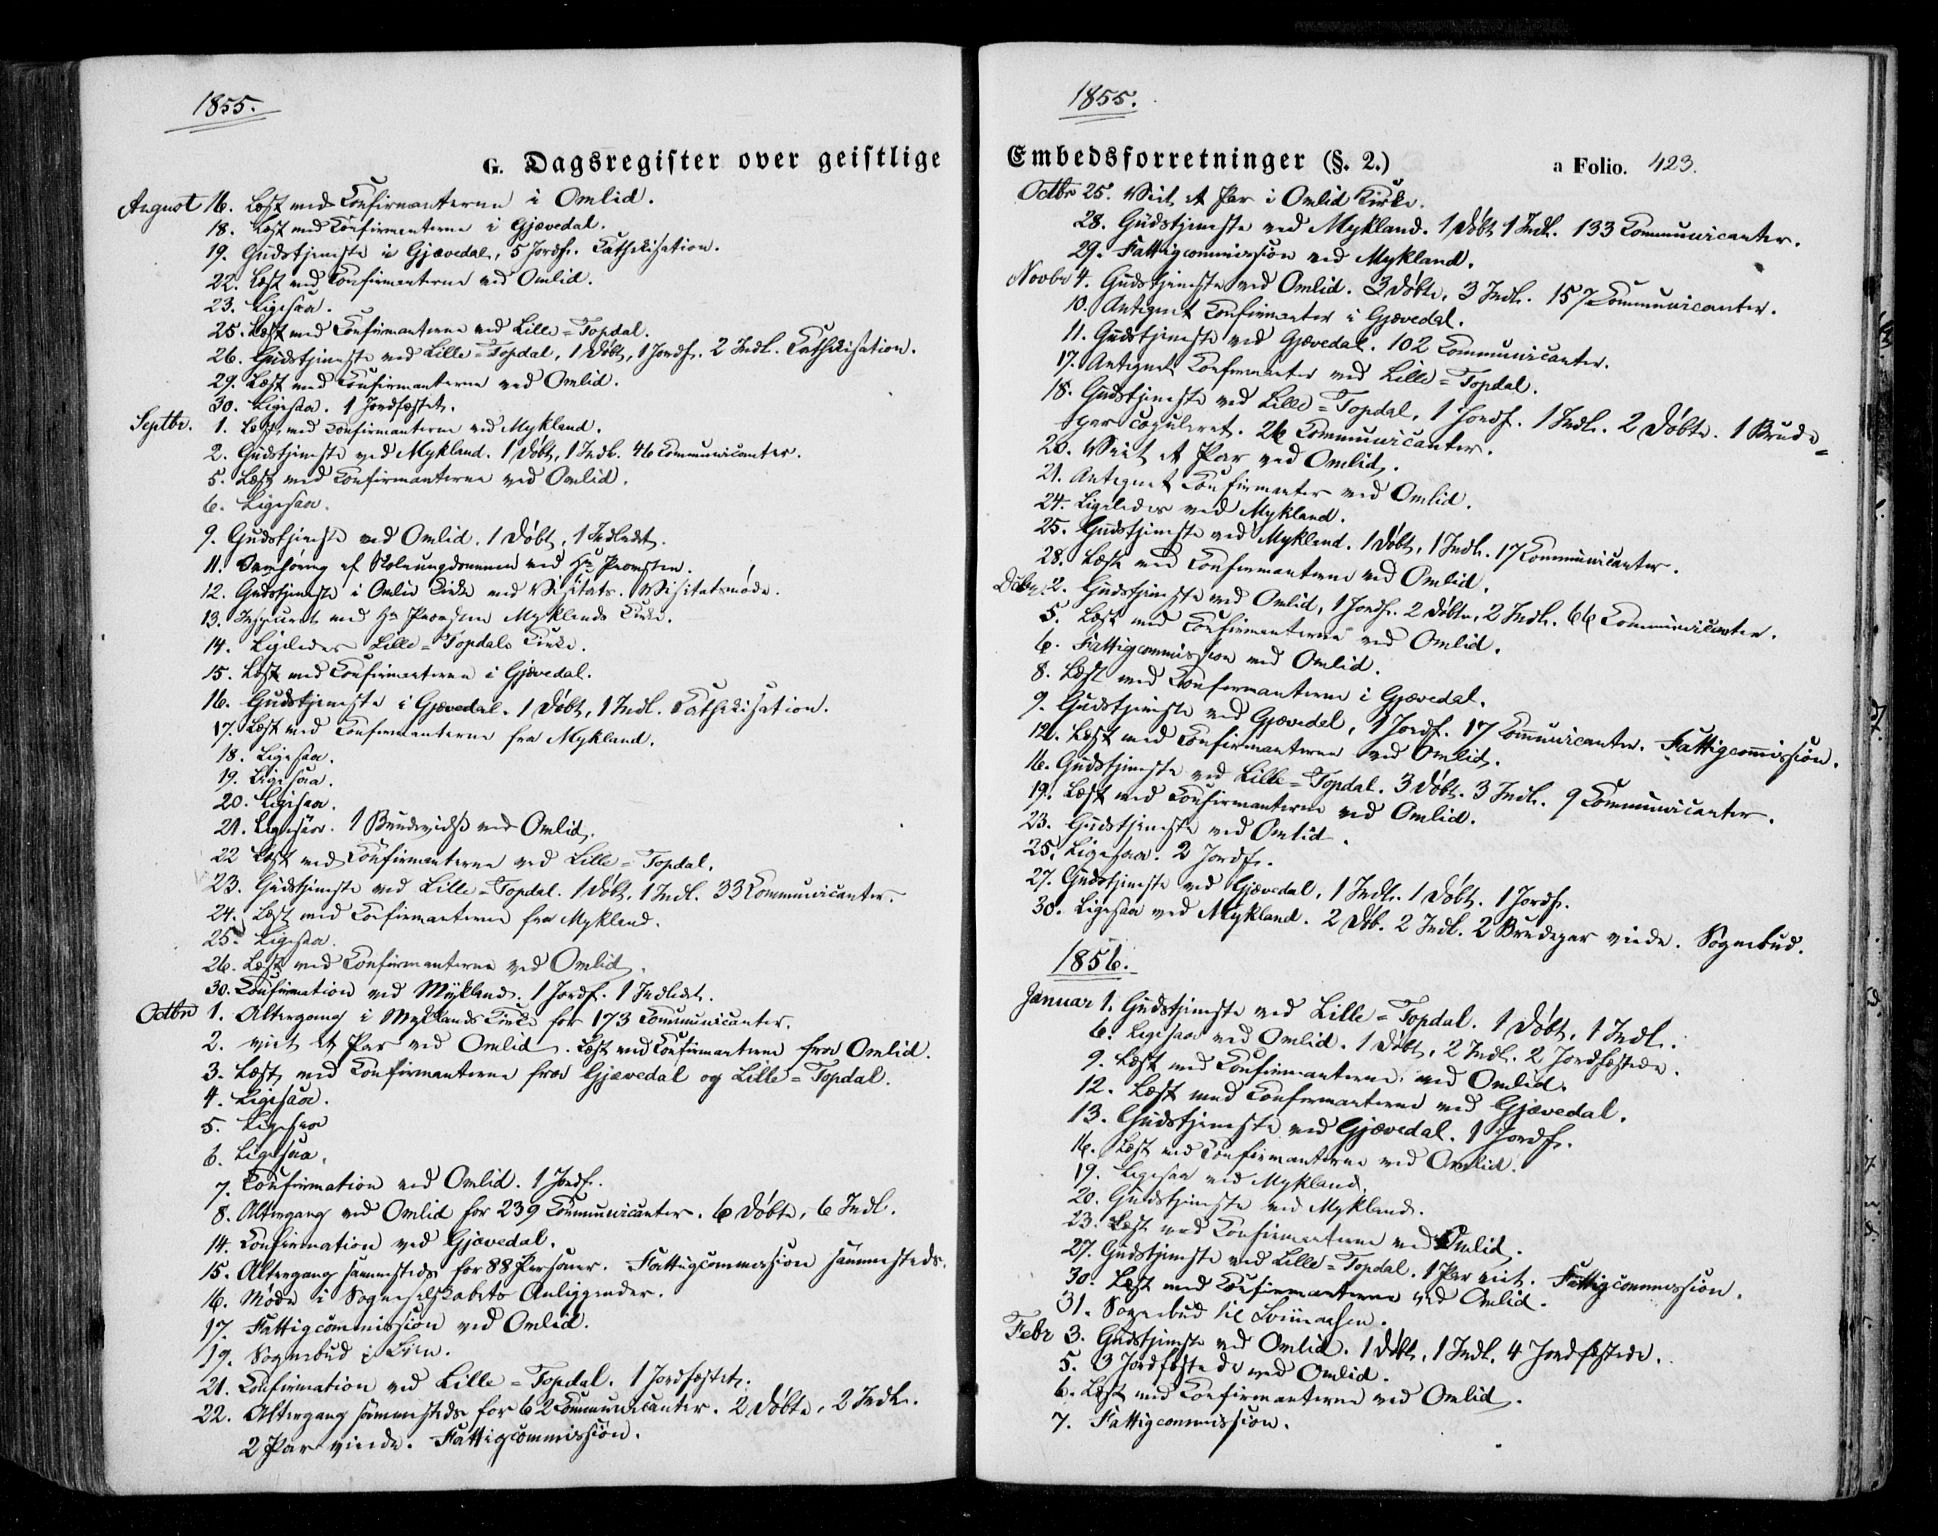 1855.
G. Dagsregister over geistlige
August 16. Læst med Confirmanterne i Omlid.
18. Læst med Confirmanterne i Gjævedal.
19. Gudstjeneste i Gjævedal, 5 Jordf. Cathekisation.
22. Læst med Confirmanterne ved Omlid.
23. Ligesaa.
25. Læst med Confirmanterne ved Lille=Topdal.
26. Gudstjeneste ved Lille=Topdal, 1 Døbt, 1 Jordf. 2 Indl. Cathekisation.
29. Læst med Confirmanterne ved Omlid.
30. Ligesaa. 1 Jordfæstet.
Septbr. 1. Læst med Confirmanterne ved Mykland.
2. Gudstjeneste ved Mykland. 1 Døbt, 1 Indl. 46 Communicanter.
5. Læst med Confirmanterne ved Omlid.
6. Ligesaa.
9. Gudstjeneste ved Omlid. 1 Døbt, 1 Indledt.
11. Overhøring af Skoleungdommen ved Hr Provsten.
12. Gudstjeneste i Omlid Kirke med Visitats. Visitatsmøde.
13. Inspiceret med Hr Provsten Myklands Kirke.
14. Ligeledes Lille=Topdals Kirke.
15. Læst med Confirmanterne i Gjævedal.
16. Gudstjeneste i Gjævedal. 1 Døbt, 1 Indl. Cathekisation.
17. Læst med Confirmanterne fra Mykland.
18. Ligesaa.
19. Ligesaa.
20. Ligesaa.
21. Ligesaa. 1 Brudevielse ved Omlid.
22 Læst med Confirmanterne ved Lille=Topdal.
23. Gudstjeneste ved Lille=Topdal. 1 Døbt, 1 Indl. 33 Communicanter.
24. Læst med Confirmanterne fra Mykland.
25. Ligesaa.
26. Læst med Confirmanterne ved Omlid.
30. Confirmation ved Mykland. 1 Jordf. 1 Indledt.
Octbr 1. Altergang i Myklands Kirke for 173 Communicanter.
2. viet et Par ved Omlid. Læst med Confirmanterne fra Omlid.
3. Læst med Confirmanterne fra Gjævedal og Lille=Topdal.
4. Ligesaa.
5. Ligesaa
6. Ligesaa.
7. Confirmation ved Omlid. 1 Jordf.
8. Altergang ved Omlid for 239 Communicanter. 6 Døbte, 6 Indl.
14. Confirmation ved Gjævedal.
15. Altergang sammesteds for 88 Personer. Fattigcommission sammesteds.
16. Møde i Sogneselskabets Anliggender.
17. Fattigcommission ved Omlid.
19. Sognebud i Lien.
21. Confirmation ved Lille=Topdal. 1 Jordfæstet.
22. Altergang sammesteds for 62 Communicanter. 2 Døbte, 2 Indl.
2 Par viede. Fattigcommission.
1855.
Embedsforretninger (§. 2.) a Folio. 423.
Octbr 25. Viet et Par i Omlid Kirke.
28. Gudstjeneste ved Mykland. 1 Døbt 1 Indl. 133 Communicanter.
29. Fattigcommission ved Mykland.
Novbr 4. Gudstjeneste ved Omlid. 3 Døbte, 3 Indl. 157 Communicanter.
10. Antegnet Confirmanter i Gjævedal.
11. Gudstjeneste ved Gjævedal. 102 Communicanter.
17. Antegnet Confirmanter ved Lille=Topdal.
18. Gudstjeneste ved Lille=Topdal, 1 Jordf. 1 Indl. 2 Døbte. 1 Brude=
par copuleret. 26 Communicanter.
20. Viet et Par ved Omlid.
21. Antegnet Confirmanter ved Omlid.
24. Ligeledes ved Mykland.
25. Gudstjeneste ved Mykland. 1 Døbt, 1 Indl. 17 Communicanter.
28. Læst med Confirmanterne ved Omlid.
Dcbr. 2. Gudstjeneste ved Omlid, 1 Jordf. 2 Døbte, 2 Indl. 66 Communicanter.
5. Læst med Confirmanterne ved Omlid.
6. Fattigcommission ved Omlid.
8. Læst med Confirmanterne i Gjævedal.
9. Gudstjeneste ved Gjævedal, 1 Jordf. 17 Communicanter. Fattigcommission.
12. Læst med Confirmanterne ved Omlid.
16. Gudstjeneste ved Lille=Topdal. 3 Døbt. 3 Indl. 9 Communicanter.
19. Læst med Confirmanterne ved Omlid.
23. Gudstjeneste ved Omlid.
25. Ligesaa. 2 Jordf.
27. Gudstjeneste ved Gjævedal, 1 Indl. 1 Døbt. 1 Jordf.
30. Ligesaa ved Mykland. 2 Døb. 2 Indl. 2 Brudepar viede. Sognebud.
1856.
Januar 1. Gudstjeneste ved Lille=Topdal. 1 Døbt, 1 Indl.
6. Ligesaa ved Omlid. 1 Døbt, 2 Indl. 2 Jordfæstede.
9. Læst med Confirmanterne ved Omlid.
12. Læst med Confirmanterne ved Gjævedal.
13. Gudstjeneste ved Gjævedal. 1 Jordf.
16. Læst med Confirmanterne ved Omlid.
19. Ligesaa ved Mykland.
20. Gudstjeneste ved Mykland.
23. Læst med Confirmanterne ved Omlid.
27. Gudstjeneste ved Lille=Topdal. 1 Par viet. Fattigcommission.
30. Læst med Confirmanterne ved Omlid.
31. Sognebud til
Febr 3. Gudstjeneste ved Omlid. 1 Døbt, 1 Indl. 4 Jordfæstede.
5. 3 Jordfæstede ved Omlid.
6. Læst med Confirmanterne ved Omlid.
7. Fattigcommission.